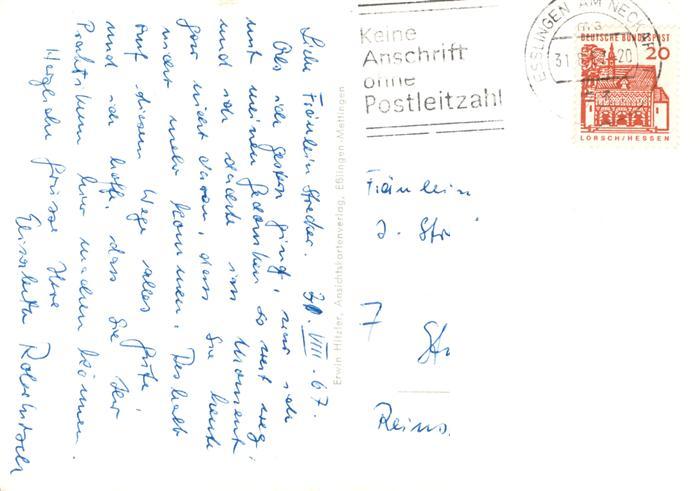 Liebe Fräulein Strecker. 31. VIII. 67.
Als ich gestern ging, war ich
mit meinen Gedanken so weit weg,
und ich dachte im Moment
gar nicht daran, dass Sie heute
nicht mehr kommen. Deshalb
auf diesem Wege alles Gute,
und ich hoffe, dass Sie Ihr
Praktikum hier machen können.
Herzliche Grüsse Ihre
Elisabeth
Erwin Hitzler, Ansichtskartenverlag, Eßlingen-Mettingen
Keine
Anschrift
ohne
Postleitzahl
ESSLINGEN AM NECKAR
31 20
DEUTSCHE BUNDESPOST
20
LORSCH/HESSEN
Fräulein
J. Str
7 St
Reins